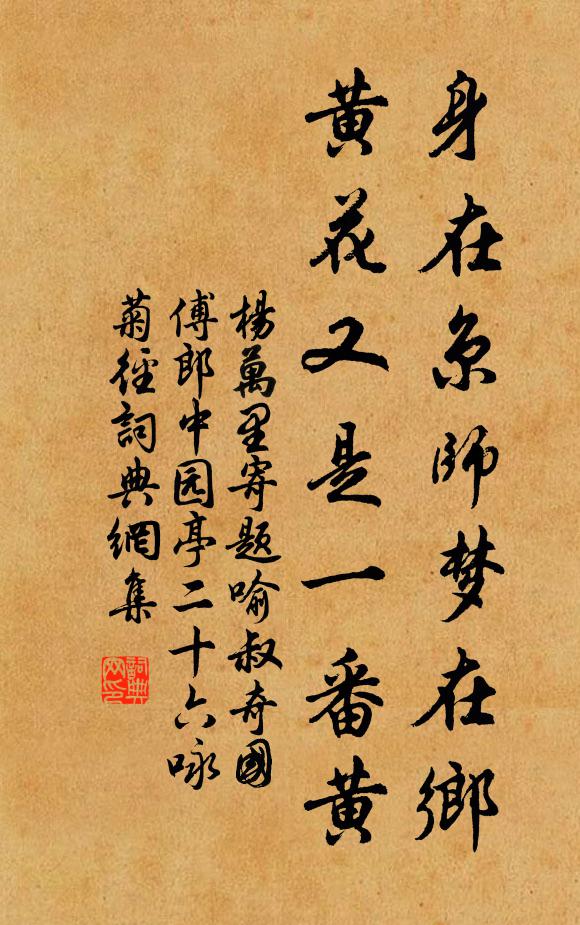 身在京師梦在鄉
黄花又是一番黄
楊萬里寄題喻叔奇國
傅郎中园亭二十六咏
菊徑詞典網集
詞典网印